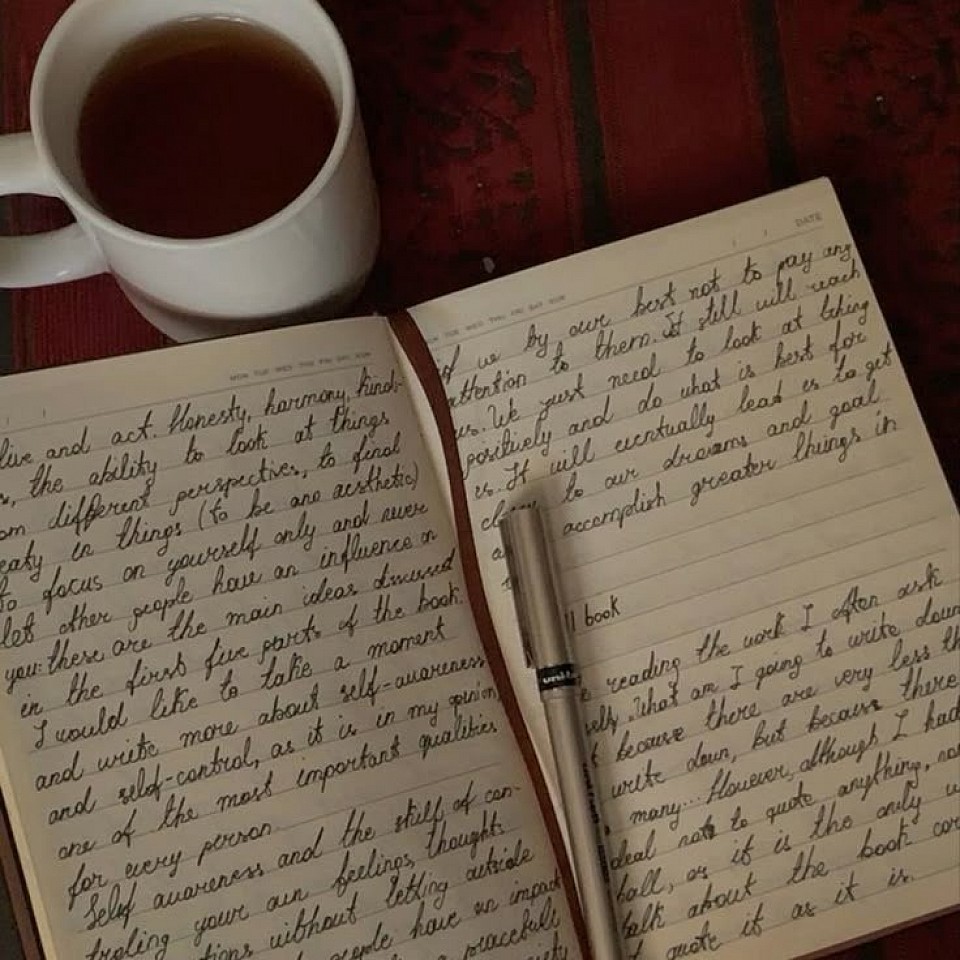 MON TUE WED THU FRI SAT SUN
live and act. Honesty, harmony, kind-
s, the ability to look at things
om different perspectives, to find
eaty in things (to be ano aesthetic)
To focus on yourself only and never
let other people have an influence on
you: these are the main ideas discussed
in the first five parts of the book.
I would like to take a moment
and write more about self-awareness
and self-control, as it is in my opinion
one of the most important qualities
for every person.
Self awareness and the skill of con-
troling your own feelings, thoughts
tions without letting outside
people have an impact
a peacefull
ciety
DATE
TUE WED THU FRI SAT SUN
if we by our best not to pay any
attention to them. It still will reach
us. We just need to look at thing
positively and do what is best for
us. It will eventually lead us to get
to our dreams and goal
accomplish greater things in
ll book
e reading the work I often ask
self. What am I going to write down
t because there are very less th
write down, but because there
many... However, although I had
deal not to quote anything, no
hall, as it is the only w
talk about the book
quote it as it is.
uni